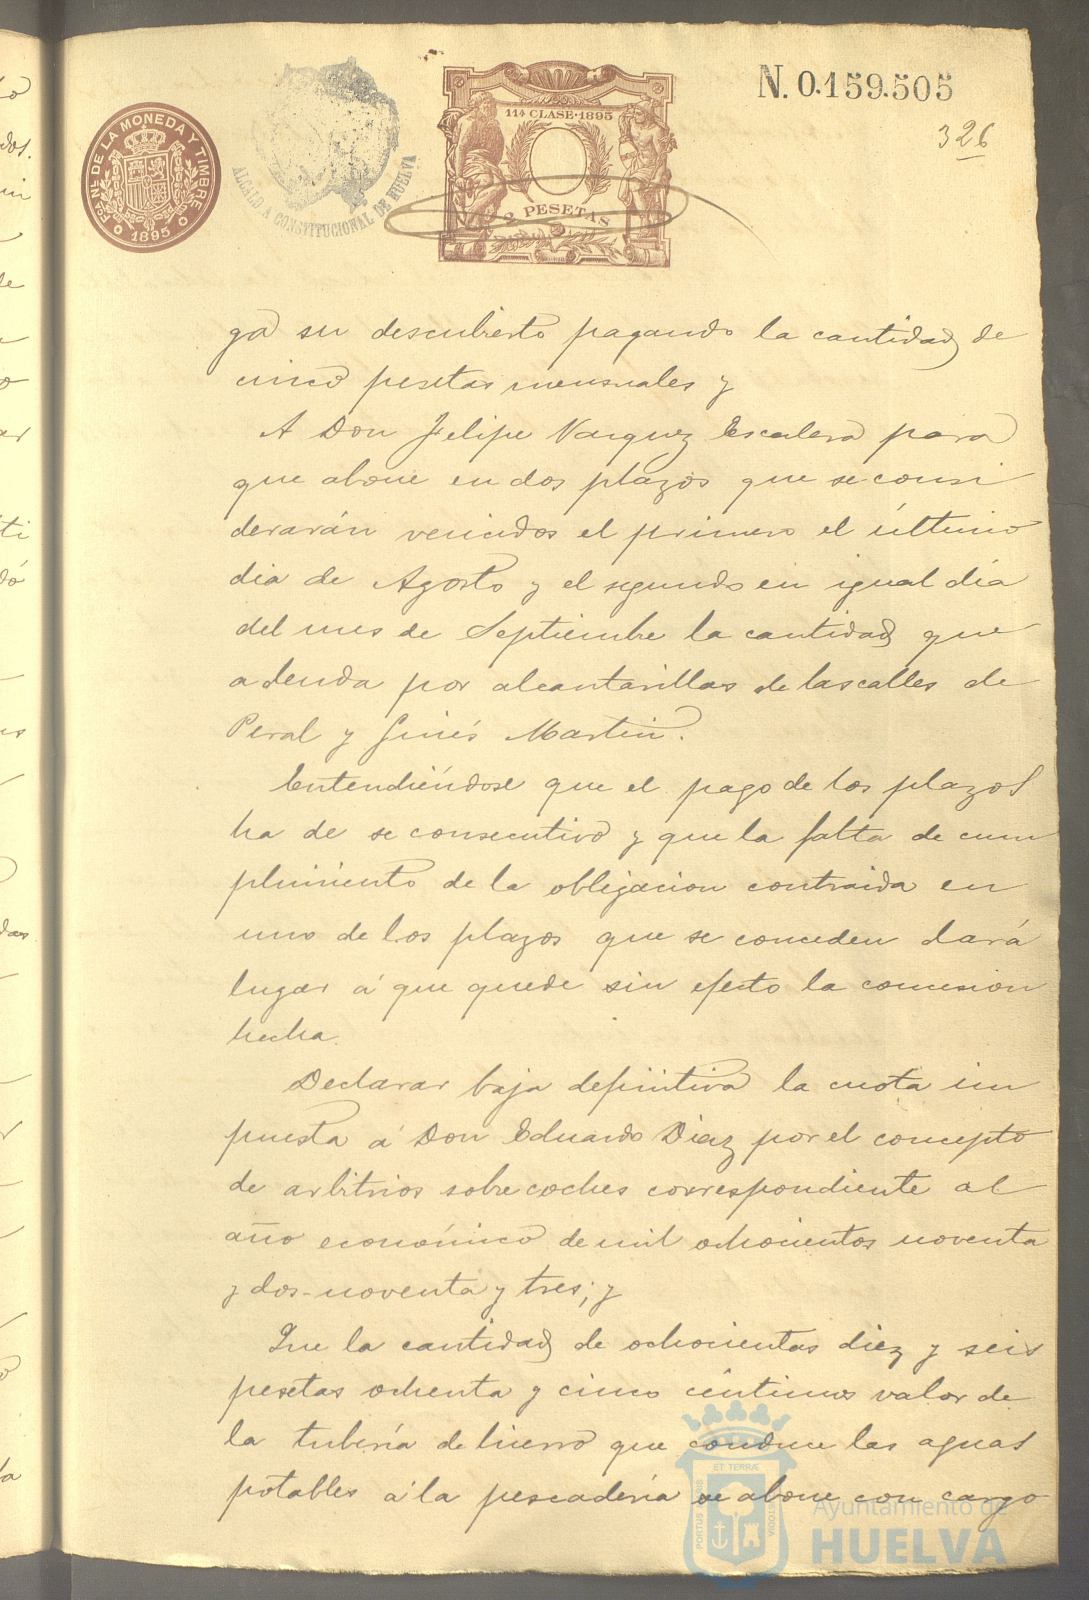 N. 0.159.505
326
FCA. NL. DE LA MONEDA Y TIMBRE
1895
ALCALDÍA CONSTITUCIONAL DE HUELVA
11ª CLASE·1895
2 PESETAS
ga su descubierto pagando la cantidad de
cinco pesetas mensuales y
A Don Felipe Vazquez Escalera para
que abone en dos plazos que se consi
derarán vencidos el primero el último
dia de Agosto y el segundo en igual dia
del mes de Septiembre la cantidad que
adeuda por alcantarillas de las calles de
Peral y Ginés Martin.
Entendiéndose que el pago de los plazos
ha de se consecutivo y que la falta de cum
plimiento de la obligacion contraida en
uno de los plazos que se conceden dará
lugar á que quede sin efecto la concesion
hecha.
Declarar baja definitiva la cuota im
puesta á Don Eduardo Diaz por el concepto
de arbitrios sobre coches correspondiente al
año económico de mil ochocientos noventa
y dos-noventa y tres; y
Que la cantidad de ochocientas diez y seis
pesetas ochenta y cinco céntimos valor de
la tubería de hierro que conduce las aguas
potables á la pescadería se abone con cargo
PORTUS MARIS ET TERRÆ CUSTODIA
Ayuntamiento de
HUELVA